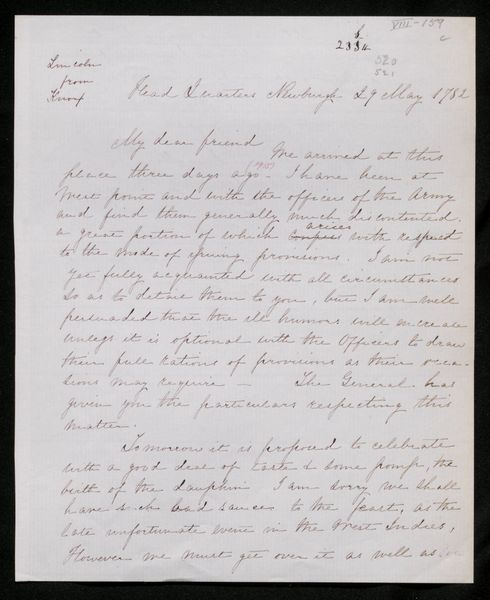 VIII-159
c
233
520
521
Lincoln
from
Knox
Head Quarters Newburgh 29 May 1782
My dear friend
We arrived at this
place three days ago - I have been at
West point and with the officers of the Army
and find them generally much discontented.
arises
a great portion of which with respect
to the mode of issuing provisions. I am not
yet fully acquainted with all circumstances
so as to detail them to you, but I am well
persuaded that the ill humors will increase
unless it is optional with the Officers to draw
their full rations of provisions as their occa-
sions may require - The General has
given you the particulars respecting this
matter.
Tomorrow it is proposed to celebrate
with a good deal of taste & some pomp, the
birth of the Dauphin I am sorry we shall
have such bad sauces to the feast, as the
late unfortunate event in the West Indies,
However we must get over it as well as